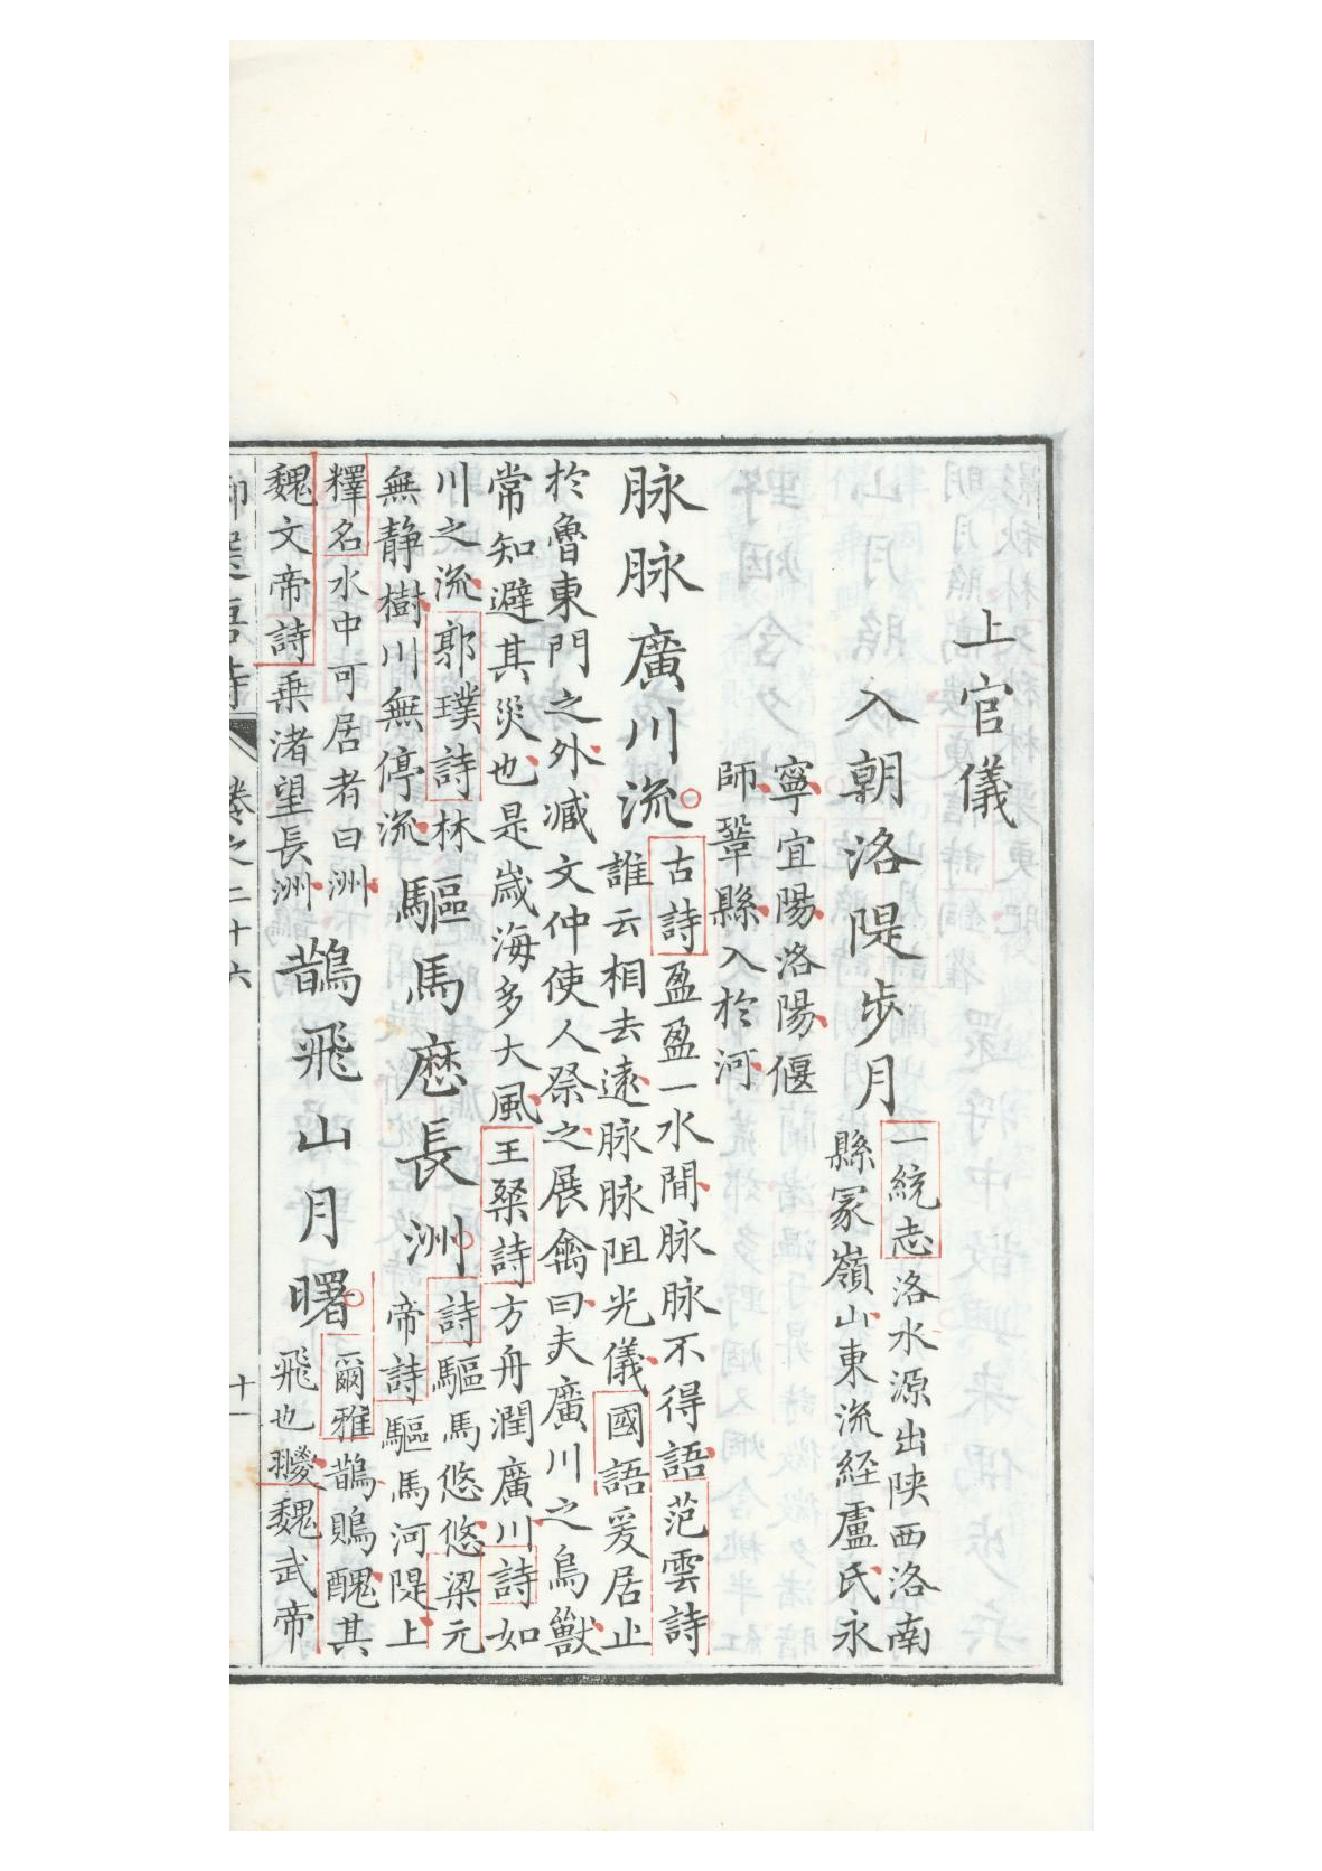 上官儀
入朝洛隄步月
一統志洛水源出陝西洛南
縣冢嶺山東流經盧氏永
寧宜陽洛陽偃
師鞏縣入於河
脉脉廣川流
古詩盈盈一水間脉脉不得語范雲詩
誰云相去遠脉脉阻光儀國語爰居止
於魯東門之外臧文仲使人祭之展禽曰夫廣川之鳥獸
常知避其災也是歲海多大風王粲詩方舟潤廣川詩如
川之流郭璞詩林
無靜樹川無停流
驅馬歷長洲
詩驅馬悠悠梁元
帝詩驅馬河隄上
釋名水中可居者曰洲
魏文帝詩乘渚望長洲
鵲飛山月曙
爾雅鵲鵙醜其
飛也翪魏武帝
卷之二十六
十一